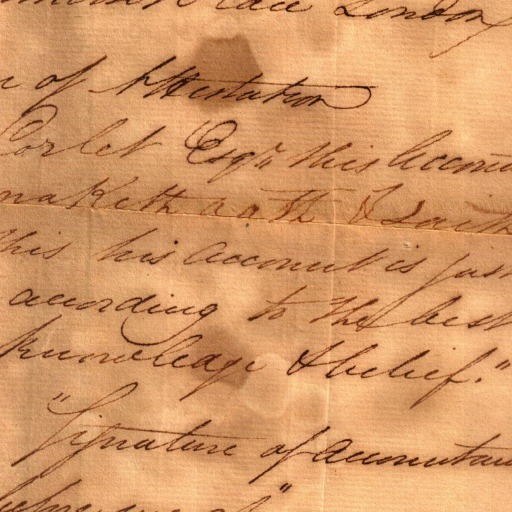 London
of Attestation
Corlet Esqr. this accoun
maketh oath & saith
this his account is just
according to the best
knowledge & belief."
"Signature of accountan